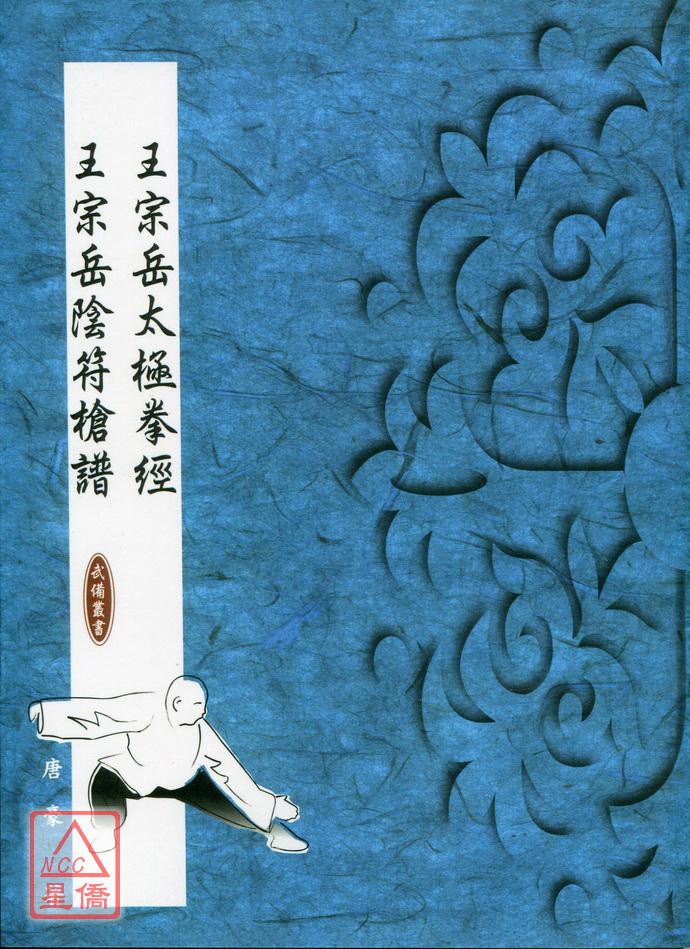 王宗岳太極拳經
王宗岳陰符槍譜
武備叢書
唐豪
NCC
星僑